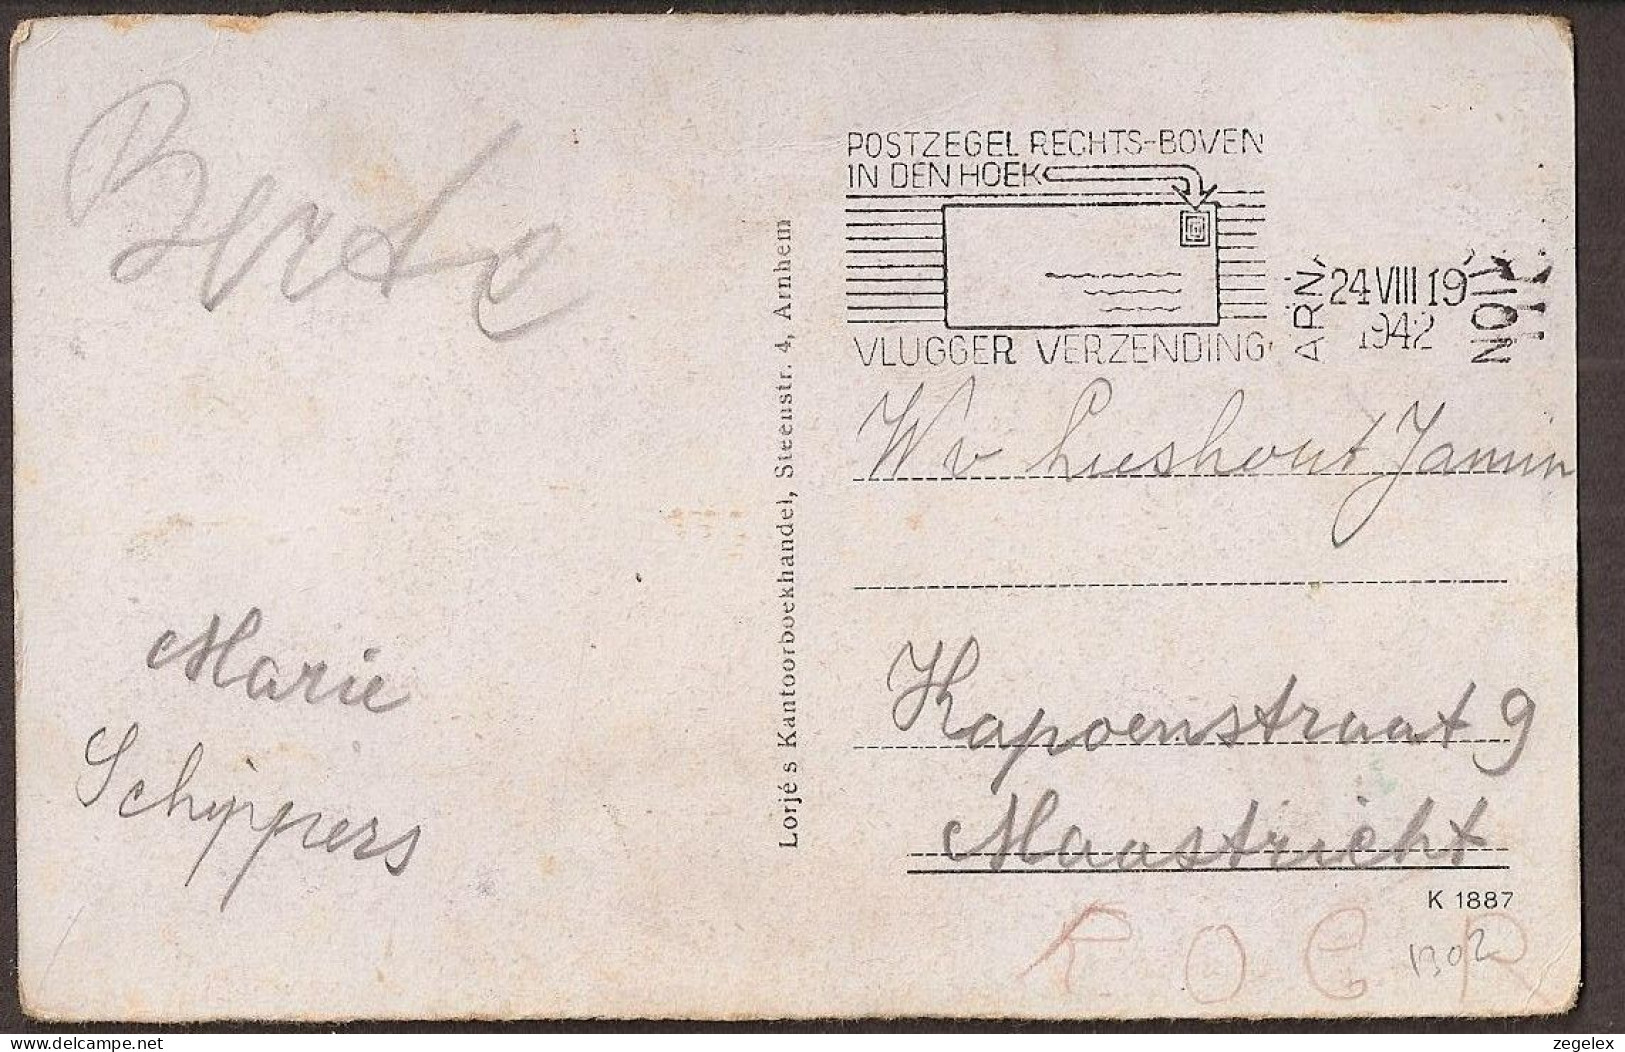 POSTZEGEL RECHTS-BOVEN
IN DEN HOEK
VLUGGER VERZENDING
ARN
24 VIII 19
1942
Lorjé's Kantoorboekhandel, Steenstr. 4, Arnhem
W v Lieshout Jamin
Kapoenstraat 9
Maastricht
Marie
Schippers
K 1887
1302
delcampe.net
zegelex